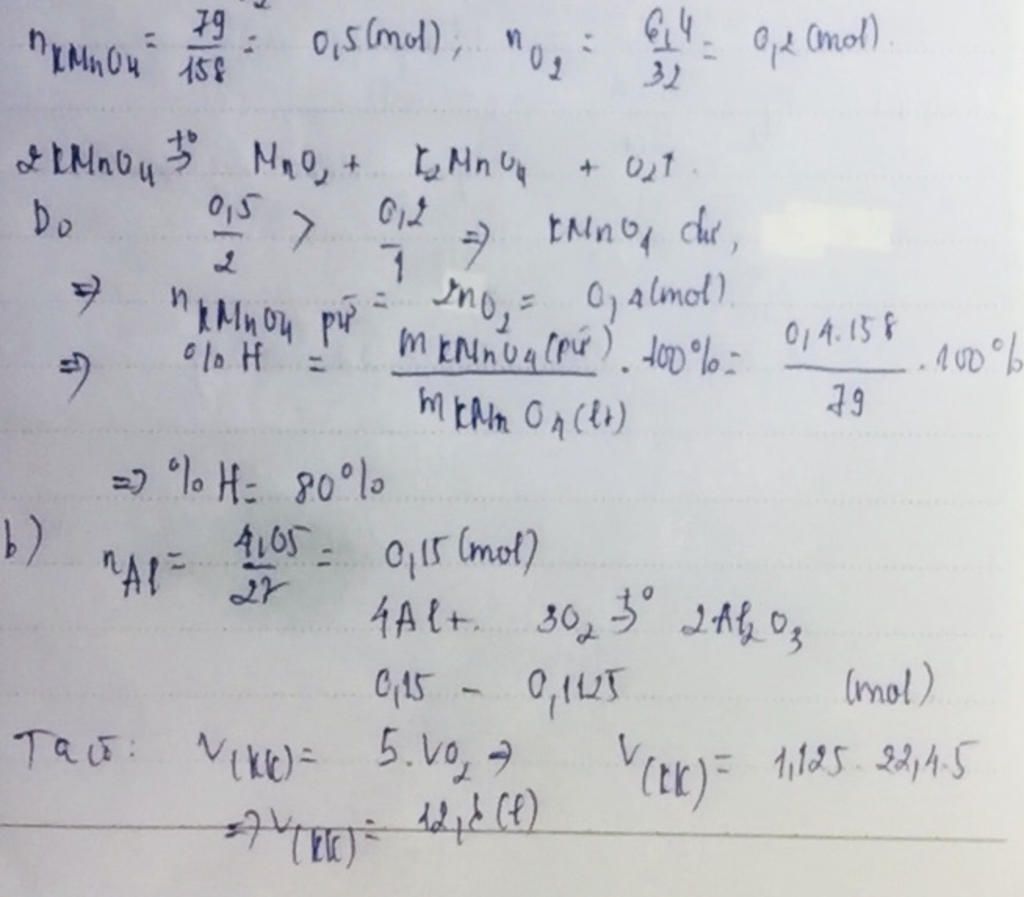 nKMnO4 = 79/158 = 0,5(mol); nO2 = 6,4/32 = 0,2(mol).
2KMnO4 t°→ MnO2 + K2MnO4 + O2↑.
Do 0,5/2 > 0,2/1 => KMnO4 dư,
=> nKMnO4 pứ = 2nO2 = 0,4(mol).
=> %H = mKMnO4(pứ)/mKMnO4(lt) . 100% = 0,4.158/79 . 100%
=> %H = 80%
b) nAl = 4,05/27 = 0,15(mol)
4Al + 3O2 t°→ 2Al2O3
0,15 - 0,1125 (mol)
Ta có: V(KK) = 5.VO2 => V(KK) = 1,125.22,4.5
=> V(KK) = 12,6(l)